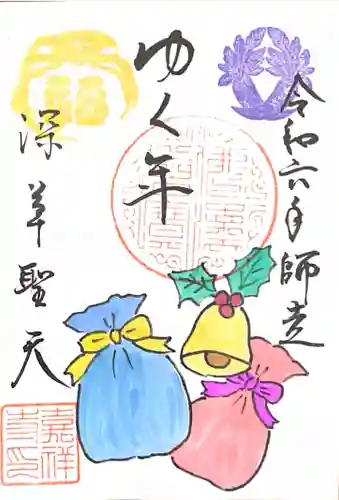 令和六年師走
ゆく年
深草聖天
嘉祥寺印